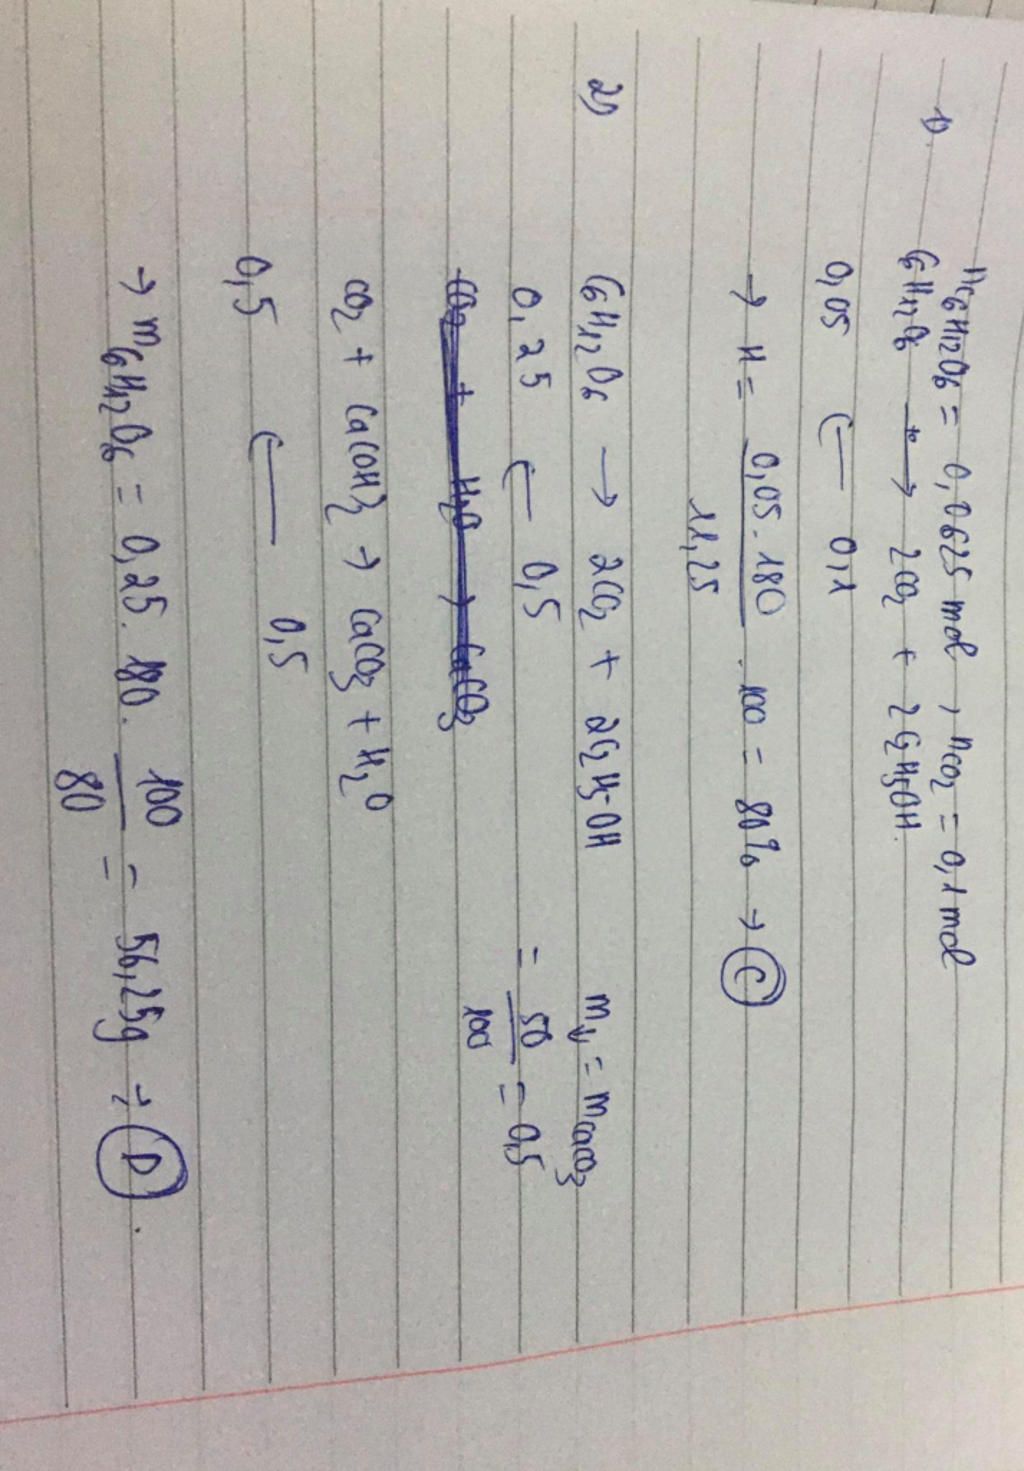 1). nC6H12O6 = 0,0625 mol, nCO2 = 0,1 mol
C6H12O6 → 2CO2 + 2C2H5OH.
0,05 ← 0,1
→ H = 0,05.180 / 11,25 . 100 = 80% → C
2) C6H12O6 → 2CO2 + 2C2H5OH m↓ = mCaCO3
0,25 ← 0,5 = 50/100 = 0,5
CO2 + H2O → CaCO3
CO2 + Ca(OH)2 → CaCO3 + H2O
0,5 ← 0,5
→ mC6H12O6 = 0,25.180. 100/80 = 56,25g → D.